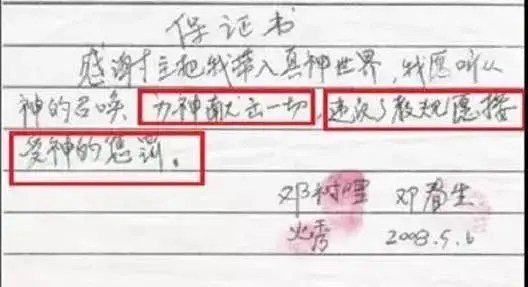 保证书
感谢主把我带入真神世界，我愿听从
神的召唤 为神献出一切，违反了教规愿接
受神的惩罚。
邓树 邓春生
秀 2003.5.6